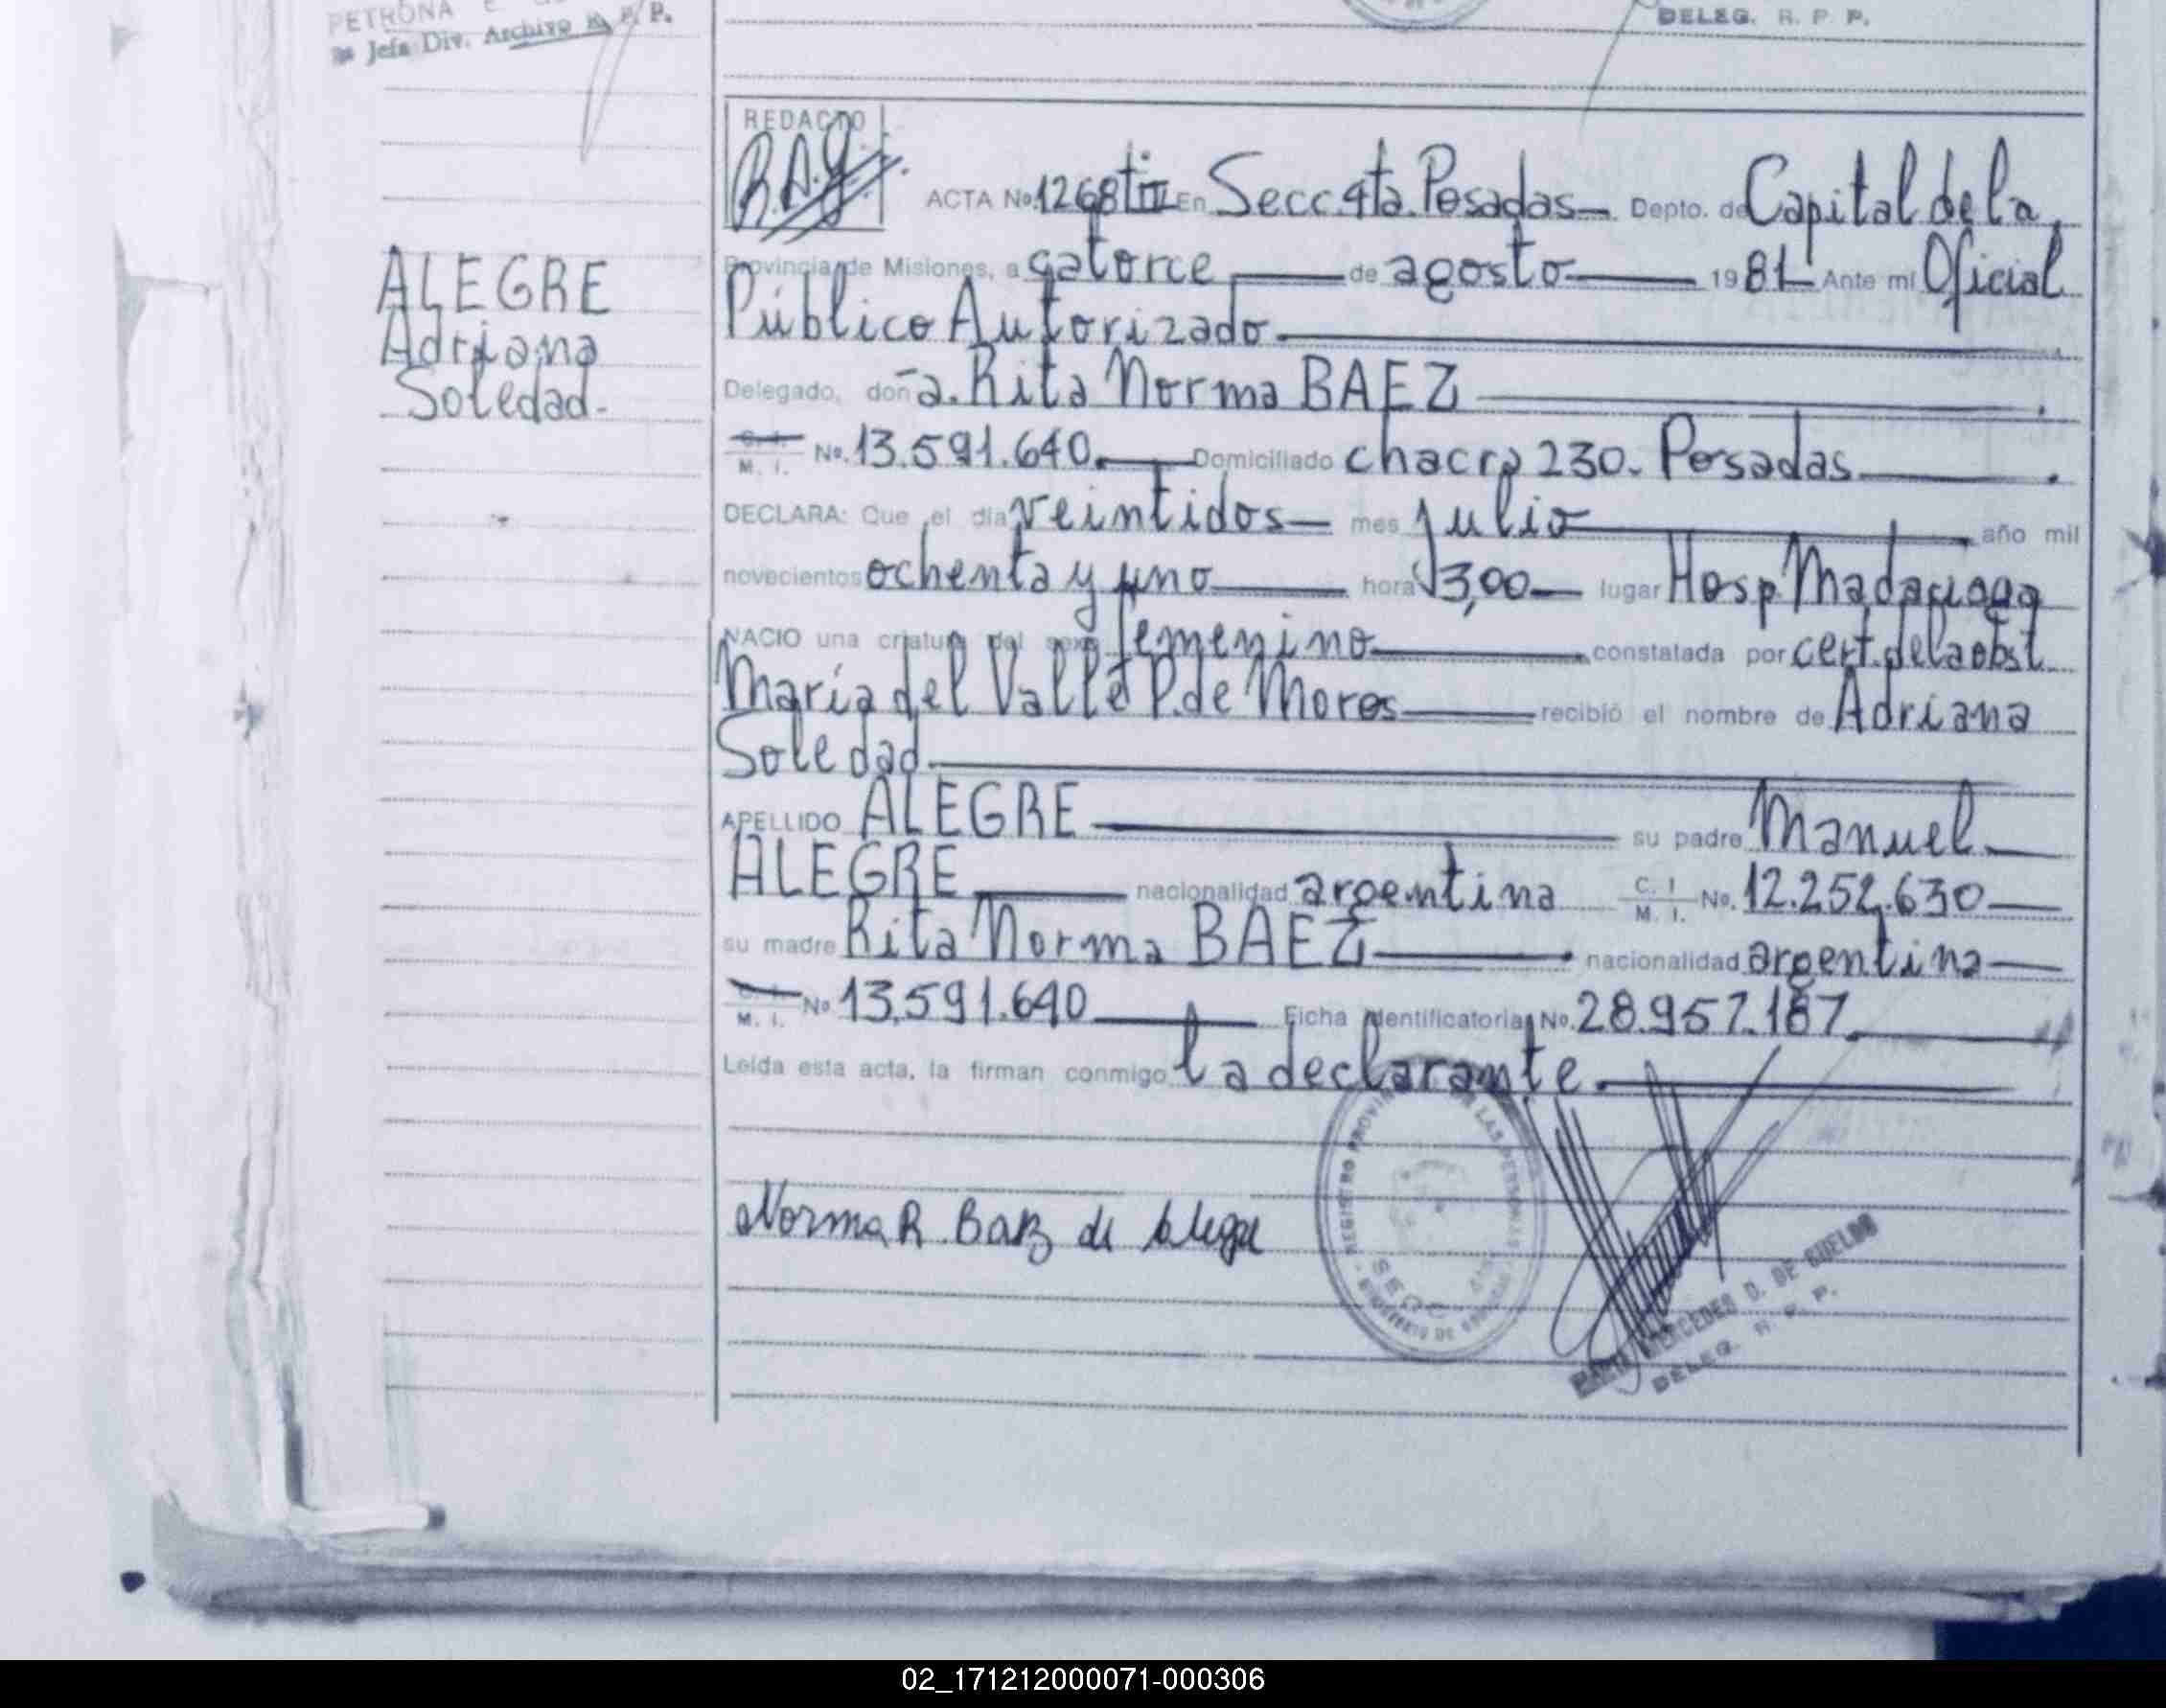 PETRONA E.
Jefa Div. Archivo R. P. P.
DELEG. R. P. P.
REDACTO
B.A.G.
ACTA No. 1268 tIII En Secc. 4ta. Posadas Depto. de Capital de la
Provincia de Misiones, a catorce de agosto 1981 Ante mi Oficial
Público Autorizado
Delegado, doña. Rita Norma BAEZ
C. I. M. I. No. 13.591.640. Domiciliado chacra 230. Posadas
DECLARA: Que el dia veintidos mes julio año mil
novecientos ochenta y uno hora 13,00 lugar Hosp. Madariaga
NACIO una criatura del sexo femenino constatada por cert. de la obst.
María del Valle P. de Mores recibió el nombre de Adriana
Soledad.
APELLIDO ALEGRE su padre Manuel
ALEGRE nacionalidad argentina C. I. M. I. No. 12.252.630
su madre Rita Norma BAEZ nacionalidad argentina
C. I. M. I. No 13.591.640 Ficha Identificatoria No. 28.957.187
Leida esta acta, la firman conmigo la declarante.
ALEGRE
Adriana
Soledad.
Norma R. Baez de Alegre
REGISTRO PROVINCIAL DE LAS PERSONAS
MERCEDES D. DE
DELEG. R. P. P.
02_171212000071-000306